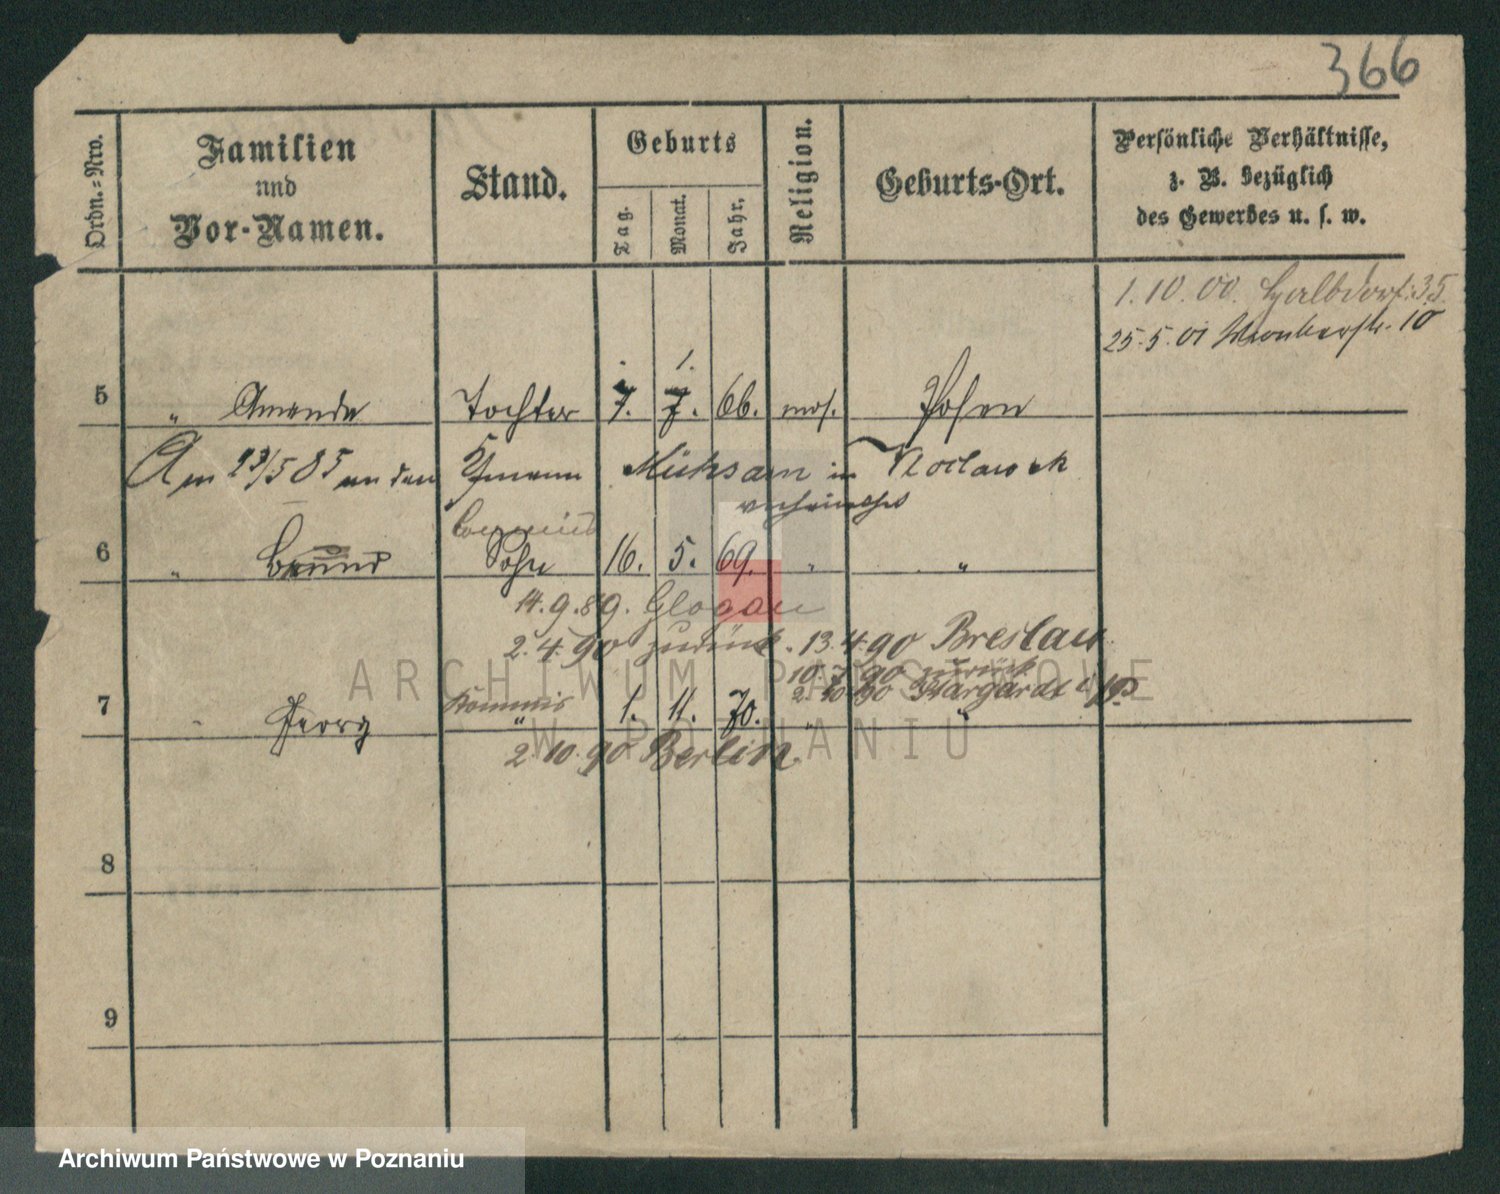 366
Ordn.=Nro.
Familien
und
Vor-Namen.
Stand.
Geburts
Tag.
Monat.
Jahr.
Religion.
Geburts-Ort.
Persönliche Verhältnisse,
z. B. bezüglich
des Gewerbes u. s. w.
1.10.00. Halbdorfstr. 35.
25.5.01 Wronkerstr. 10
1.
5 " Amanda Tochter 7. 7. 66. mos. Posen
Am 23/5 85 an den Kfmann Mühsam in Wloclawek
verheirathet
Commis
6 " Benno Sohn 16. 5. 69. " "
14.9.89. Glogau
2.4.90 zurück. 13.4.90 Breslau
10.7.90 zurück
2.10.90 Stargardt i/P
7 " Georg Kommis " 1. 11. 70. " "
2.10.90 Berlin.
8
9
ARCHIWUM PAŃSTWOWE
W POZNANIU
Archiwum Państwowe w Poznaniu